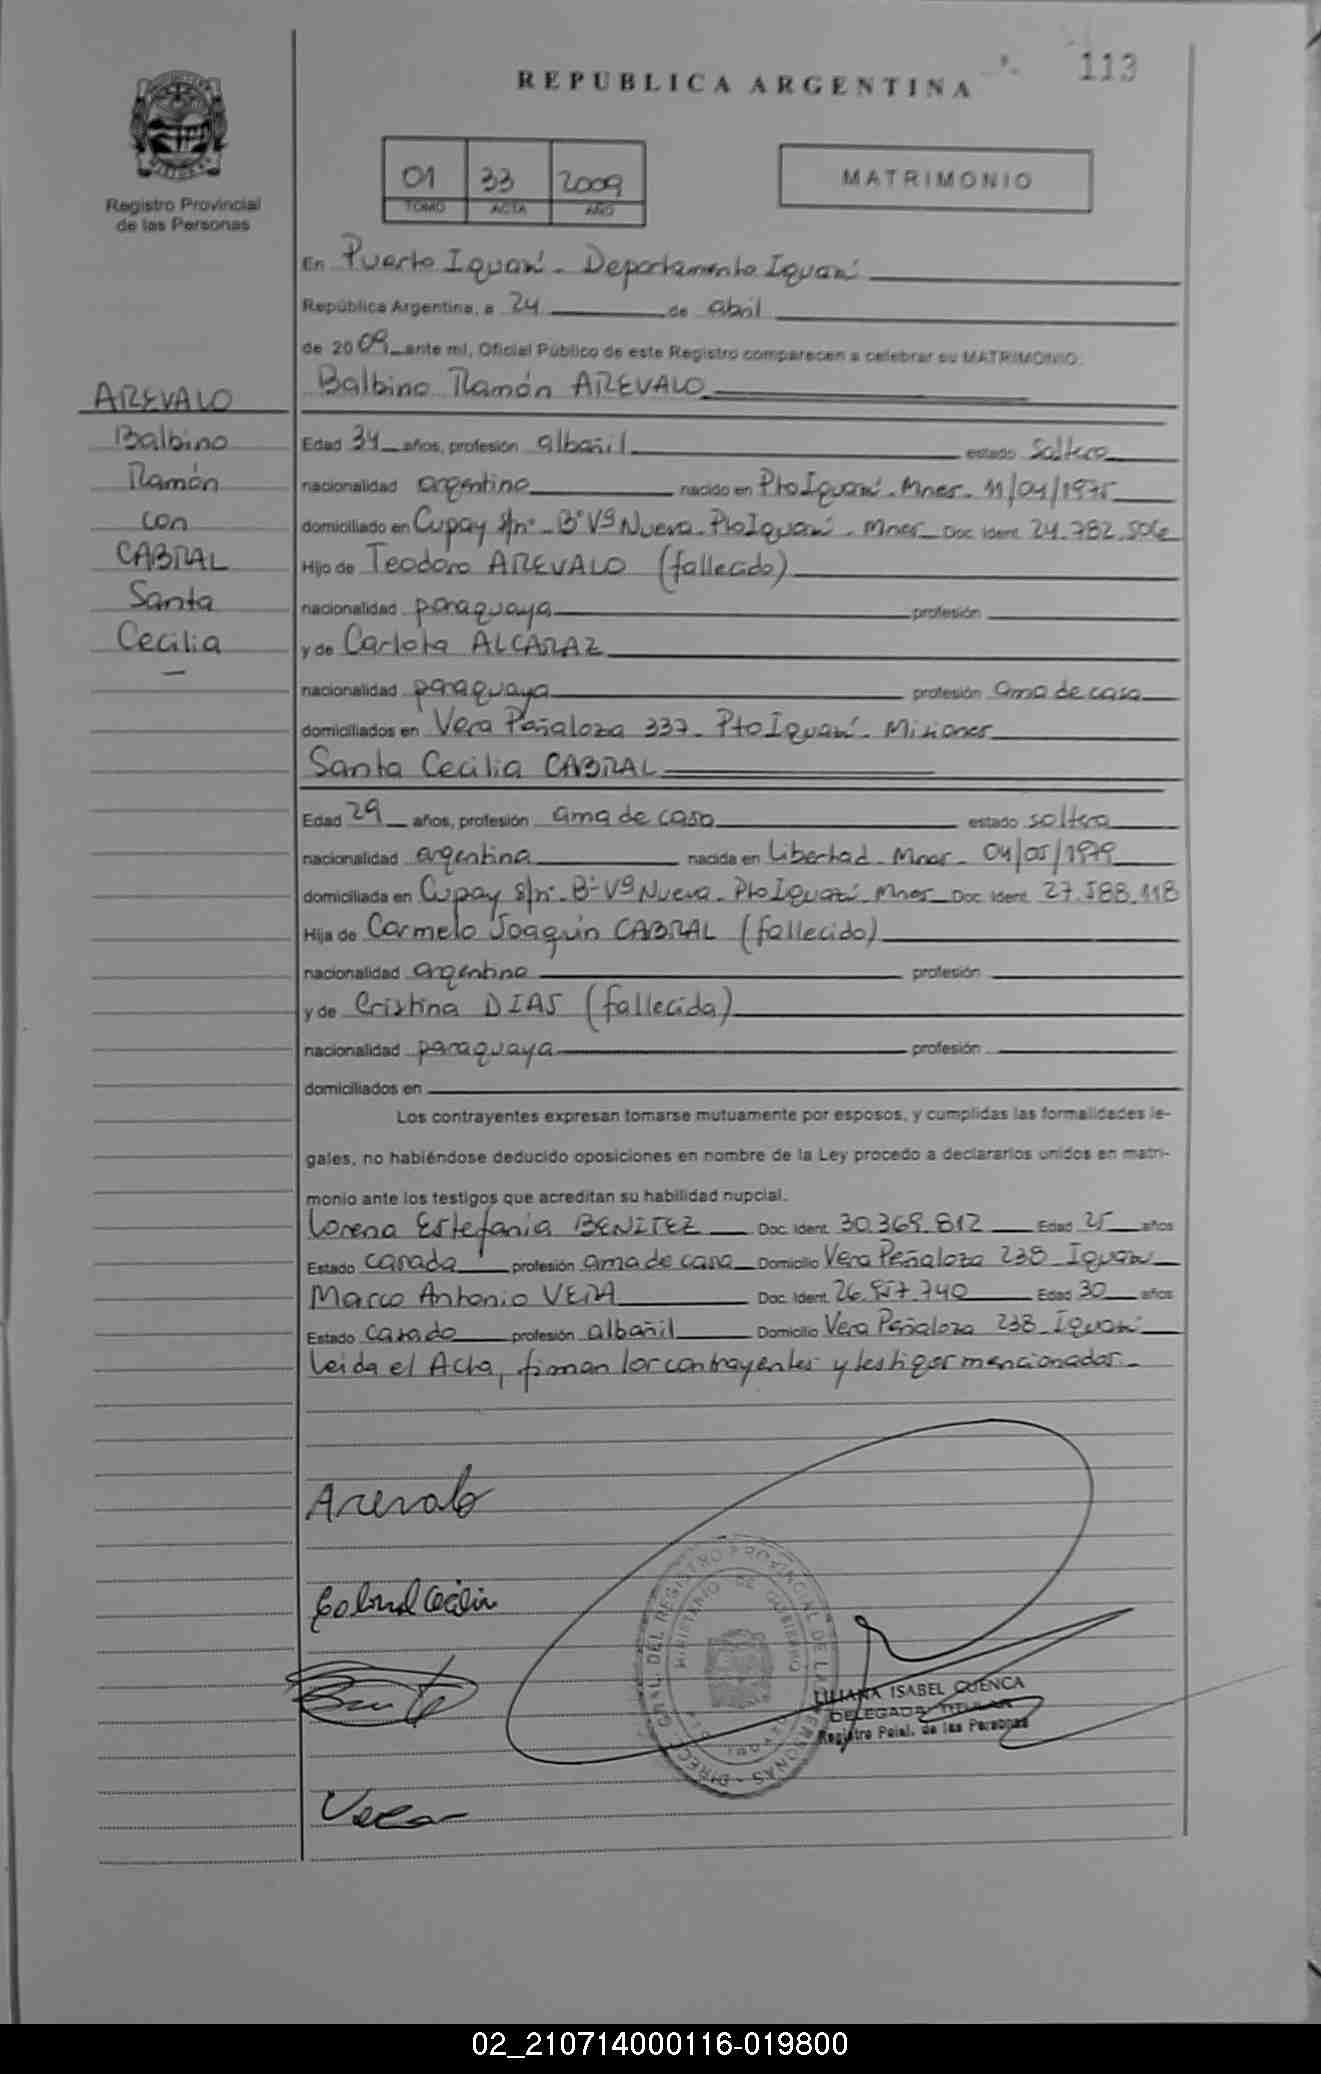 113
REPUBLICA ARGENTINA
01 33 2009
TOMO ACTA AÑO
MATRIMONIO
Registro Provincial
de las Personas
En Puerto Iguazú - Departamento Iguazú
República Argentina, a 24 de abril
de 2009 ante mí, Oficial Público de este Registro comparecen a celebrar su MATRIMONIO:
Balbino Ramón AREVALO
AREVALO
Balbino
Ramón
con
CABRAL
Santa
Cecilia
Edad 34 años, profesión albañil estado soltero
nacionalidad argentina nacido en Pto Iguazú - Mnes - 11/04/1975
domiciliado en Cupay s/nº - Bº Vª Nueva - Pto Iguazú - Mnes - Doc. Ident. 24.782.506
Hijo de Teodoro AREVALO (fallecido)
nacionalidad paraguaya profesión
y de Carlota ALCARAZ
nacionalidad paraguaya profesión ama de casa
domiciliados en Vera Peñaloza 337 - Pto Iguazú - Misiones
Santa Cecilia CABRAL
Edad 29 años, profesión ama de casa estado soltera
nacionalidad argentina nacida en Libertad - Mnes - 04/05/1979
domiciliada en Cupay s/nº - Bº Vª Nueva - Pto Iguazú - Mnes - Doc. Ident. 27.588.118
Hija de Carmelo Joaquín CABRAL (fallecido)
nacionalidad argentina profesión
y de Cristina DIAS (fallecida)
nacionalidad paraguaya profesión
domiciliados en
Los contrayentes expresan tomarse mutuamente por esposos, y cumplidas las formalidades le-
gales, no habiéndose deducido oposiciones en nombre de la Ley procedo a declararlos unidos en matri-
monio ante los testigos que acreditan su habilidad nupcial.
Lorena Estefania BENITEZ Doc. Ident. 30.369.812 Edad 25 años
Estado casada profesión ama de casa Domicilio Vera Peñaloza 238 Iguazú
Marco Antonio VERA Doc. Ident. 26.857.740 Edad 30 años
Estado casado profesión albañil Domicilio Vera Peñaloza 238 - Iguazú
Leída el Acta, firman los contrayentes y testigos mencionados.-
Arevalo
Cabral Cecilia
DIREC. GRAL. DEL REGISTRO PROVINCIAL DE LAS PERSONAS
MINISTERIO DE GOBIERNO
LILIANA ISABEL CUENCA
DELEGADA TITULAR
Registro Pcial. de las Personas
Vera
02_210714000116-019800